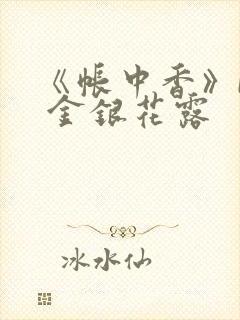 《帳中香》
金銀花露
冰水仙